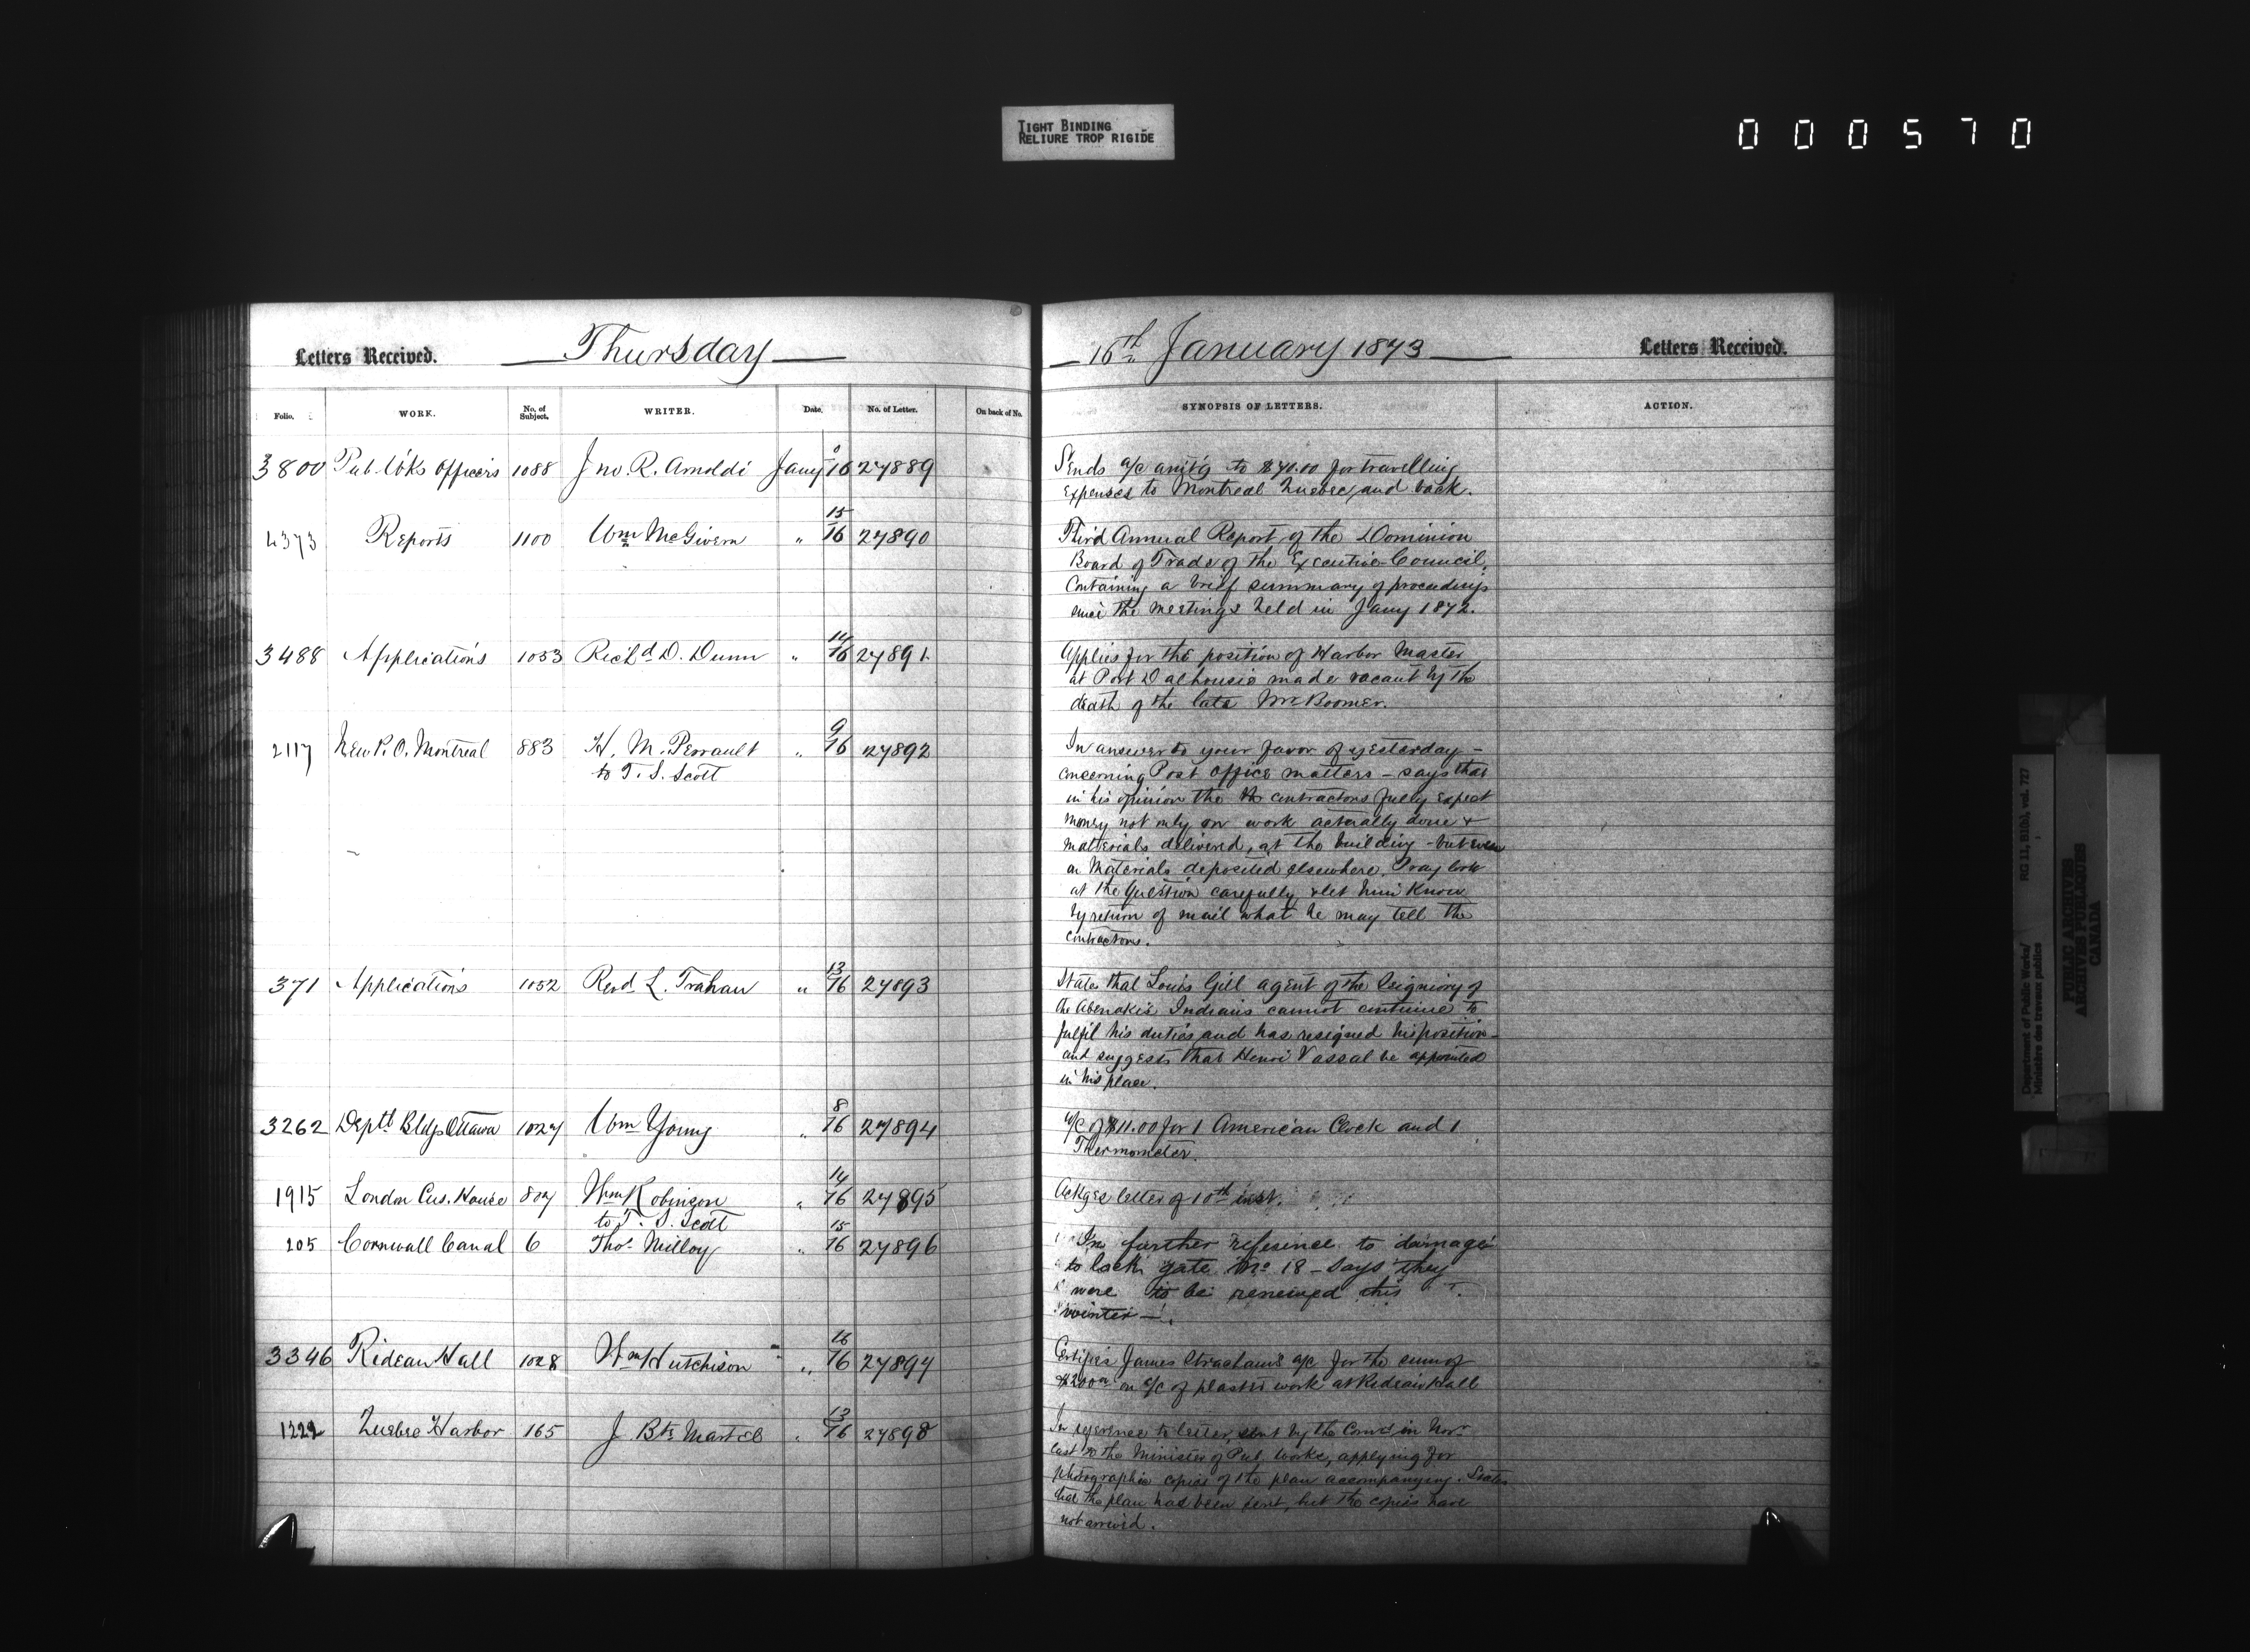 TIGHT BINDING
RELIURE TROP RIGIDE
000570
Letters Received. Thursday
16th January 1873 Letters Received.
Folio. WORK. No. of Subject. WRITER. Date. No. of Letter. On back of No.
SYNOPSIS OF LETTERS. ACTION.
3800 Pub. W'ks Officers 1088 Jno. R. Arnoldi Jany 16 27889
Sends a/c am't'g to $70.00 for travelling
expenses to Montreal Quebec, and back.
4373 Reports 1100 Wm McGivern " 15/16 27890
Third Annual Report of the Dominion
Board of Trade of the Executive Council,
Containing a brief summary of proceedings
since the meetings held in Jany 1872.
3488 Applications 1053 Rich'd D. Dunn " 14/16 27891
Applies for the position of Harbor Master
at Port Dalhousie made vacant by the
death of the late Mr Boomer.
2117 New P.O. Montreal 883 H. M. Perrault " 9/16 27892
to T. S. Scott
In answer to your favor of yesterday -
concerning Post Office matters - says that
in his opinion the the contractors fully expect
money not only on work actually done +
materials delivered, at the building - but even
on Materials deposited elsewhere. Pray look
at the question carefully & let him know
by return of mail what he may tell the
contractors.
371 Applications 1052 Revd L. Trahan " 13/16 27893
States that Louis Gill agent of the Seigniory of
the Abenakis Indians cannot continue to
fulfil his duties and has resigned his position -
and suggests that Henri Vassal be appointed
in his place.
3262 Deptl Bldgs Ottawa 1027 Wm Young " 8/16 27894
a/c of $11.00 for 1 American Clock and 1
Thermometer.
1915 London Cus. House 807 Wm Robinson " 14/16 27895
to T. S. Scott
Ackges letter of 10th inst.
205 Cornwall Canal 6 Thos Milloy " 15/16 27896
In further reference to damage
to lock gate No 18 - Says they
were to be renewed this
winter -
3346 Rideau Hall 1028 Wm Hutchison " 16/16 27897
Certifies James Strachan's a/c for the sum of
$200 on a/c of plaster work at Rideau Hall
1222 Quebec Harbor 165 J. Bte Martel " 13/16 27898
In reference to letter, sent by the Comrs in Nov.
last to the Minister of Pub. Works, applying for
photographic copies of the plan accompanying. States
that the plan has been sent, but the copies have
not arrived.
Department of Public Works/ RG 11, B1(b), vol. 727
Ministère des travaux publics
PUBLIC ARCHIVES
ARCHIVES PUBLIQUES
CANADA